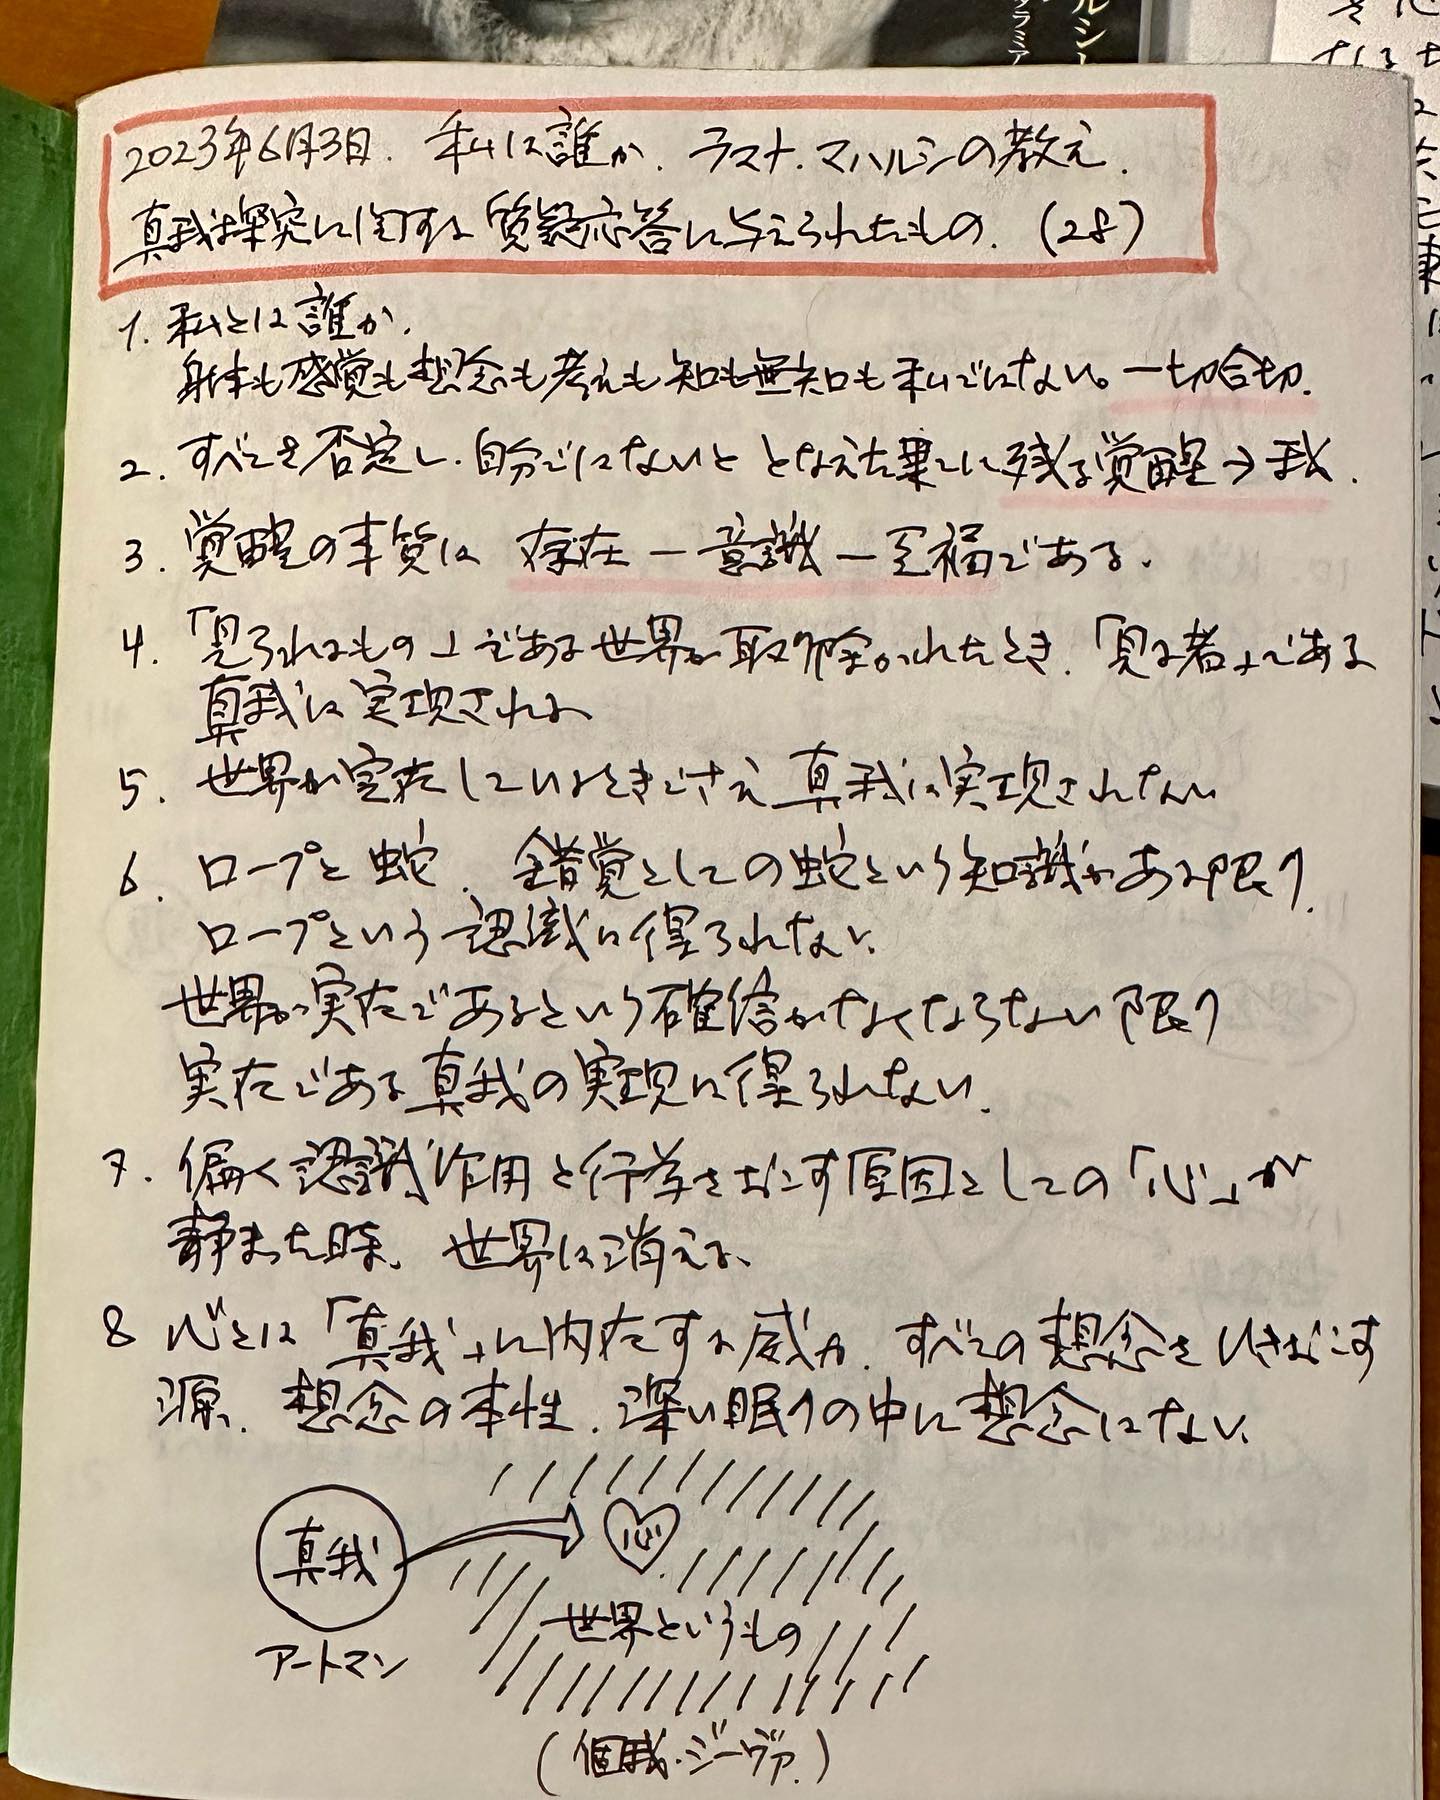 2023年6月3日. 私は誰か. ラマナ.マハルシの教え.
真我探究に関する質疑応答に与えられたもの. (28)
1. 私とは誰か.
身体も感覚も想念も考えも知も無知も私ではない。一切合切.
2. すべてを否定し.自分ではないと となえた果てに残る覚醒→我.
3. 覚醒の本質は 存在ー意識ー至福である.
4. 「見られるもの」である世界が取り除かれたとき.「見る者」である
真我は実現される
5. 世界が実在しているときでさえ 真我は実現されない
6. ロープと蛇. 錯覚としての蛇という知識がある限り.
ロープという認識は得られない.
世界が実在であるという確信がなくならない限り
実在である真我の実現は得られない.
7. 働く認識作用と行為をおこす原因としての「心」が
静まった時. 世界は消える.
8 心とは「真我」に内在する威力. すべての想念をひきおこす
源. 想念の本性.深い眠りの中に想念はない.
真我
心
世界というもの
アートマン
(個我.ジーヴァ.)
ルシ